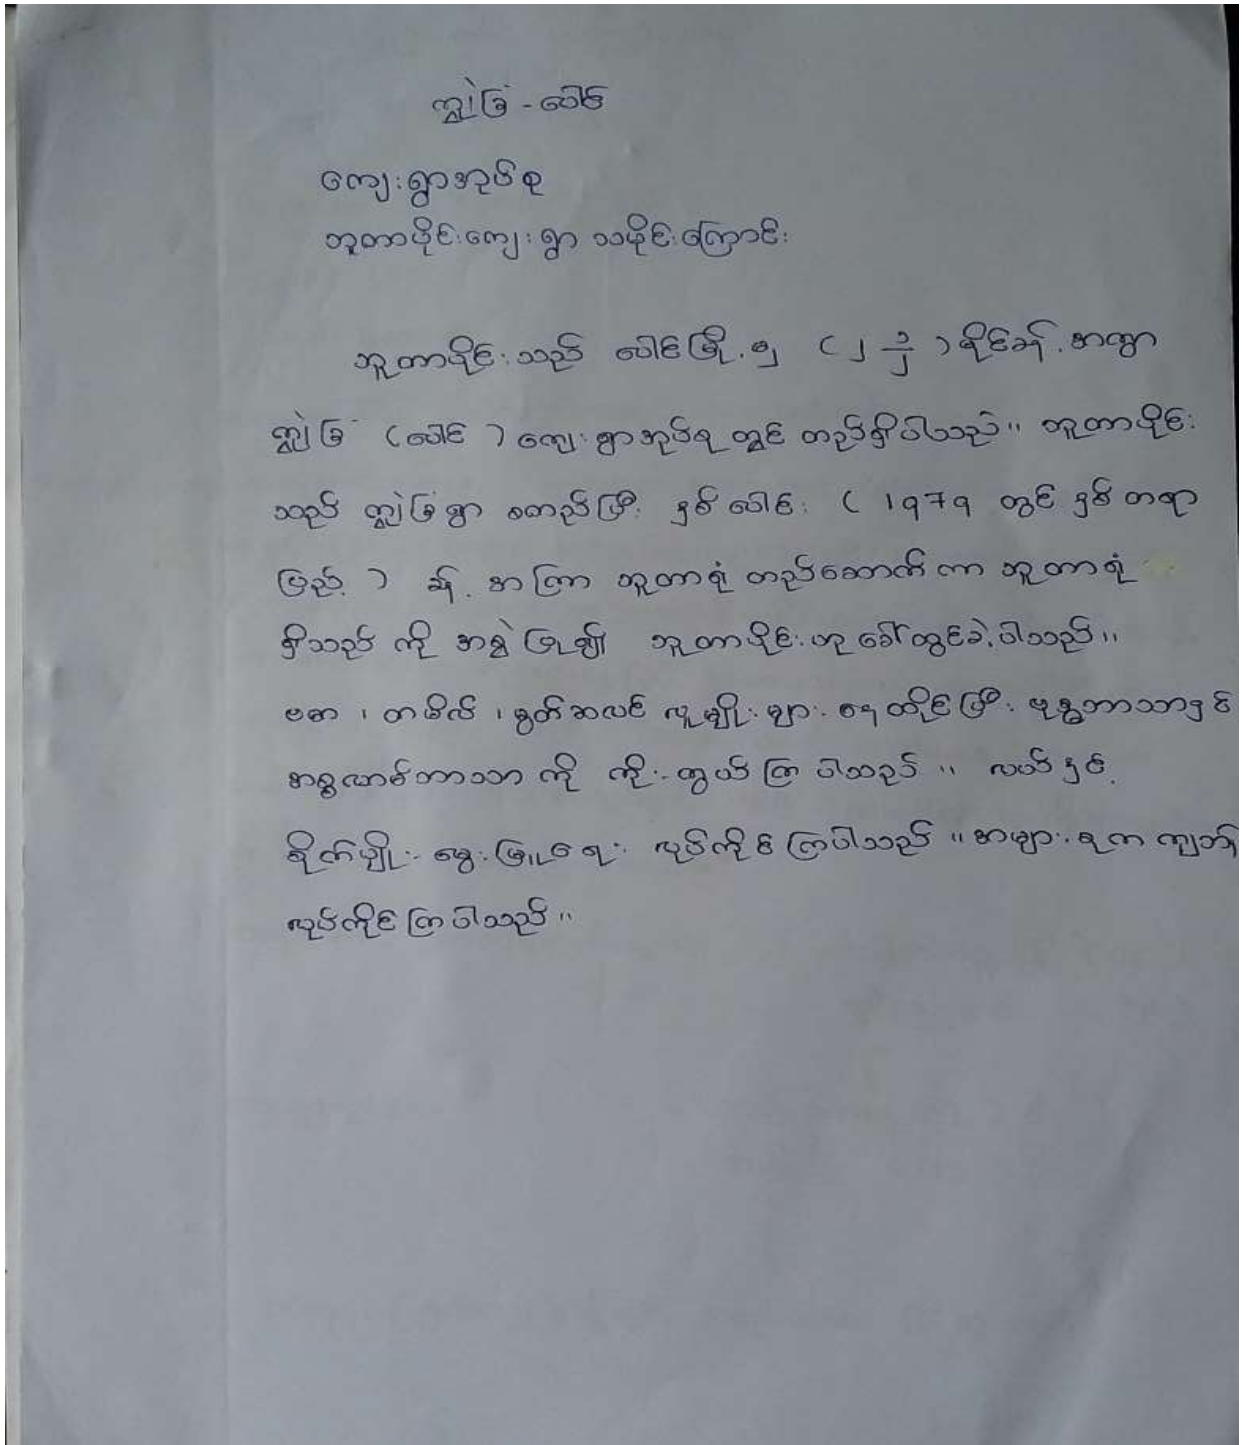 ကျွဲခြံ - ပေါင်
ကျေးရွာအုပ်စု
ဘူတာပိုင်းကျေးရွာ သမိုင်းကြောင်း
ဘူတာပိုင်းသည် ပေါင်မြို့၏ (၂ ၁/၂) မိုင်ခန့် အကွာ
ကျွဲခြံ (ပေါင်) ကျေးရွာအုပ်စုတွင် တည်ရှိပါသည်။ ဘူတာပိုင်း
သည် ကျွဲခြံရွာ စတည်ပြီး နှစ်ပေါင်း (1979 တွင် နှစ်တရာ
ပြည့်) ခန့် အကြာ ဘူတာရုံ တည်ဆောက်ကာ ဘူတာရုံ
ရှိသည် ကို အစွဲပြု၍ ဘူတာပိုင်းဟု ခေါ်တွင်ခဲ့ပါသည်။
ဗမာ ၊ တမိလ် ၊ ခွတ်ဆလင် လူမျိုးများ နေထိုင်ပြီး ဗုဒ္ဓဘာသာနှင့်
အစ္စလာမ်ဘာသာ ကို ကိုးကွယ်ကြပါသည်။ လယ်နှင့်
စိုက်ပျိုး မွေးမြူရေး လုပ်ကိုင်ကြပါသည်။ အများစုက ကျဘန်း
လုပ်ကိုင်ကြပါသည်။